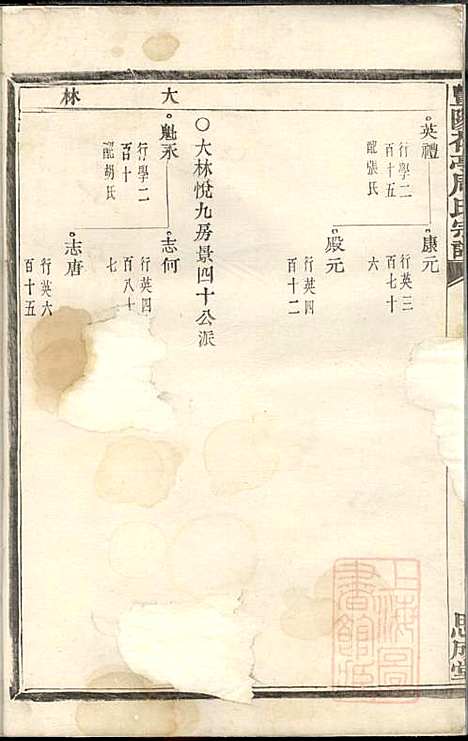 大林
英禮
行學二
百十五
配張氏
康元
行英三
百七十
六
殿元
行英四
百十二
○大林悅九房景四十公派
魁永
行學二
百十
配胡氏
志何
行英四
百八十
七
志唐
行英六
百十五
周氏宗譜
思成堂
上海圖
書館藏